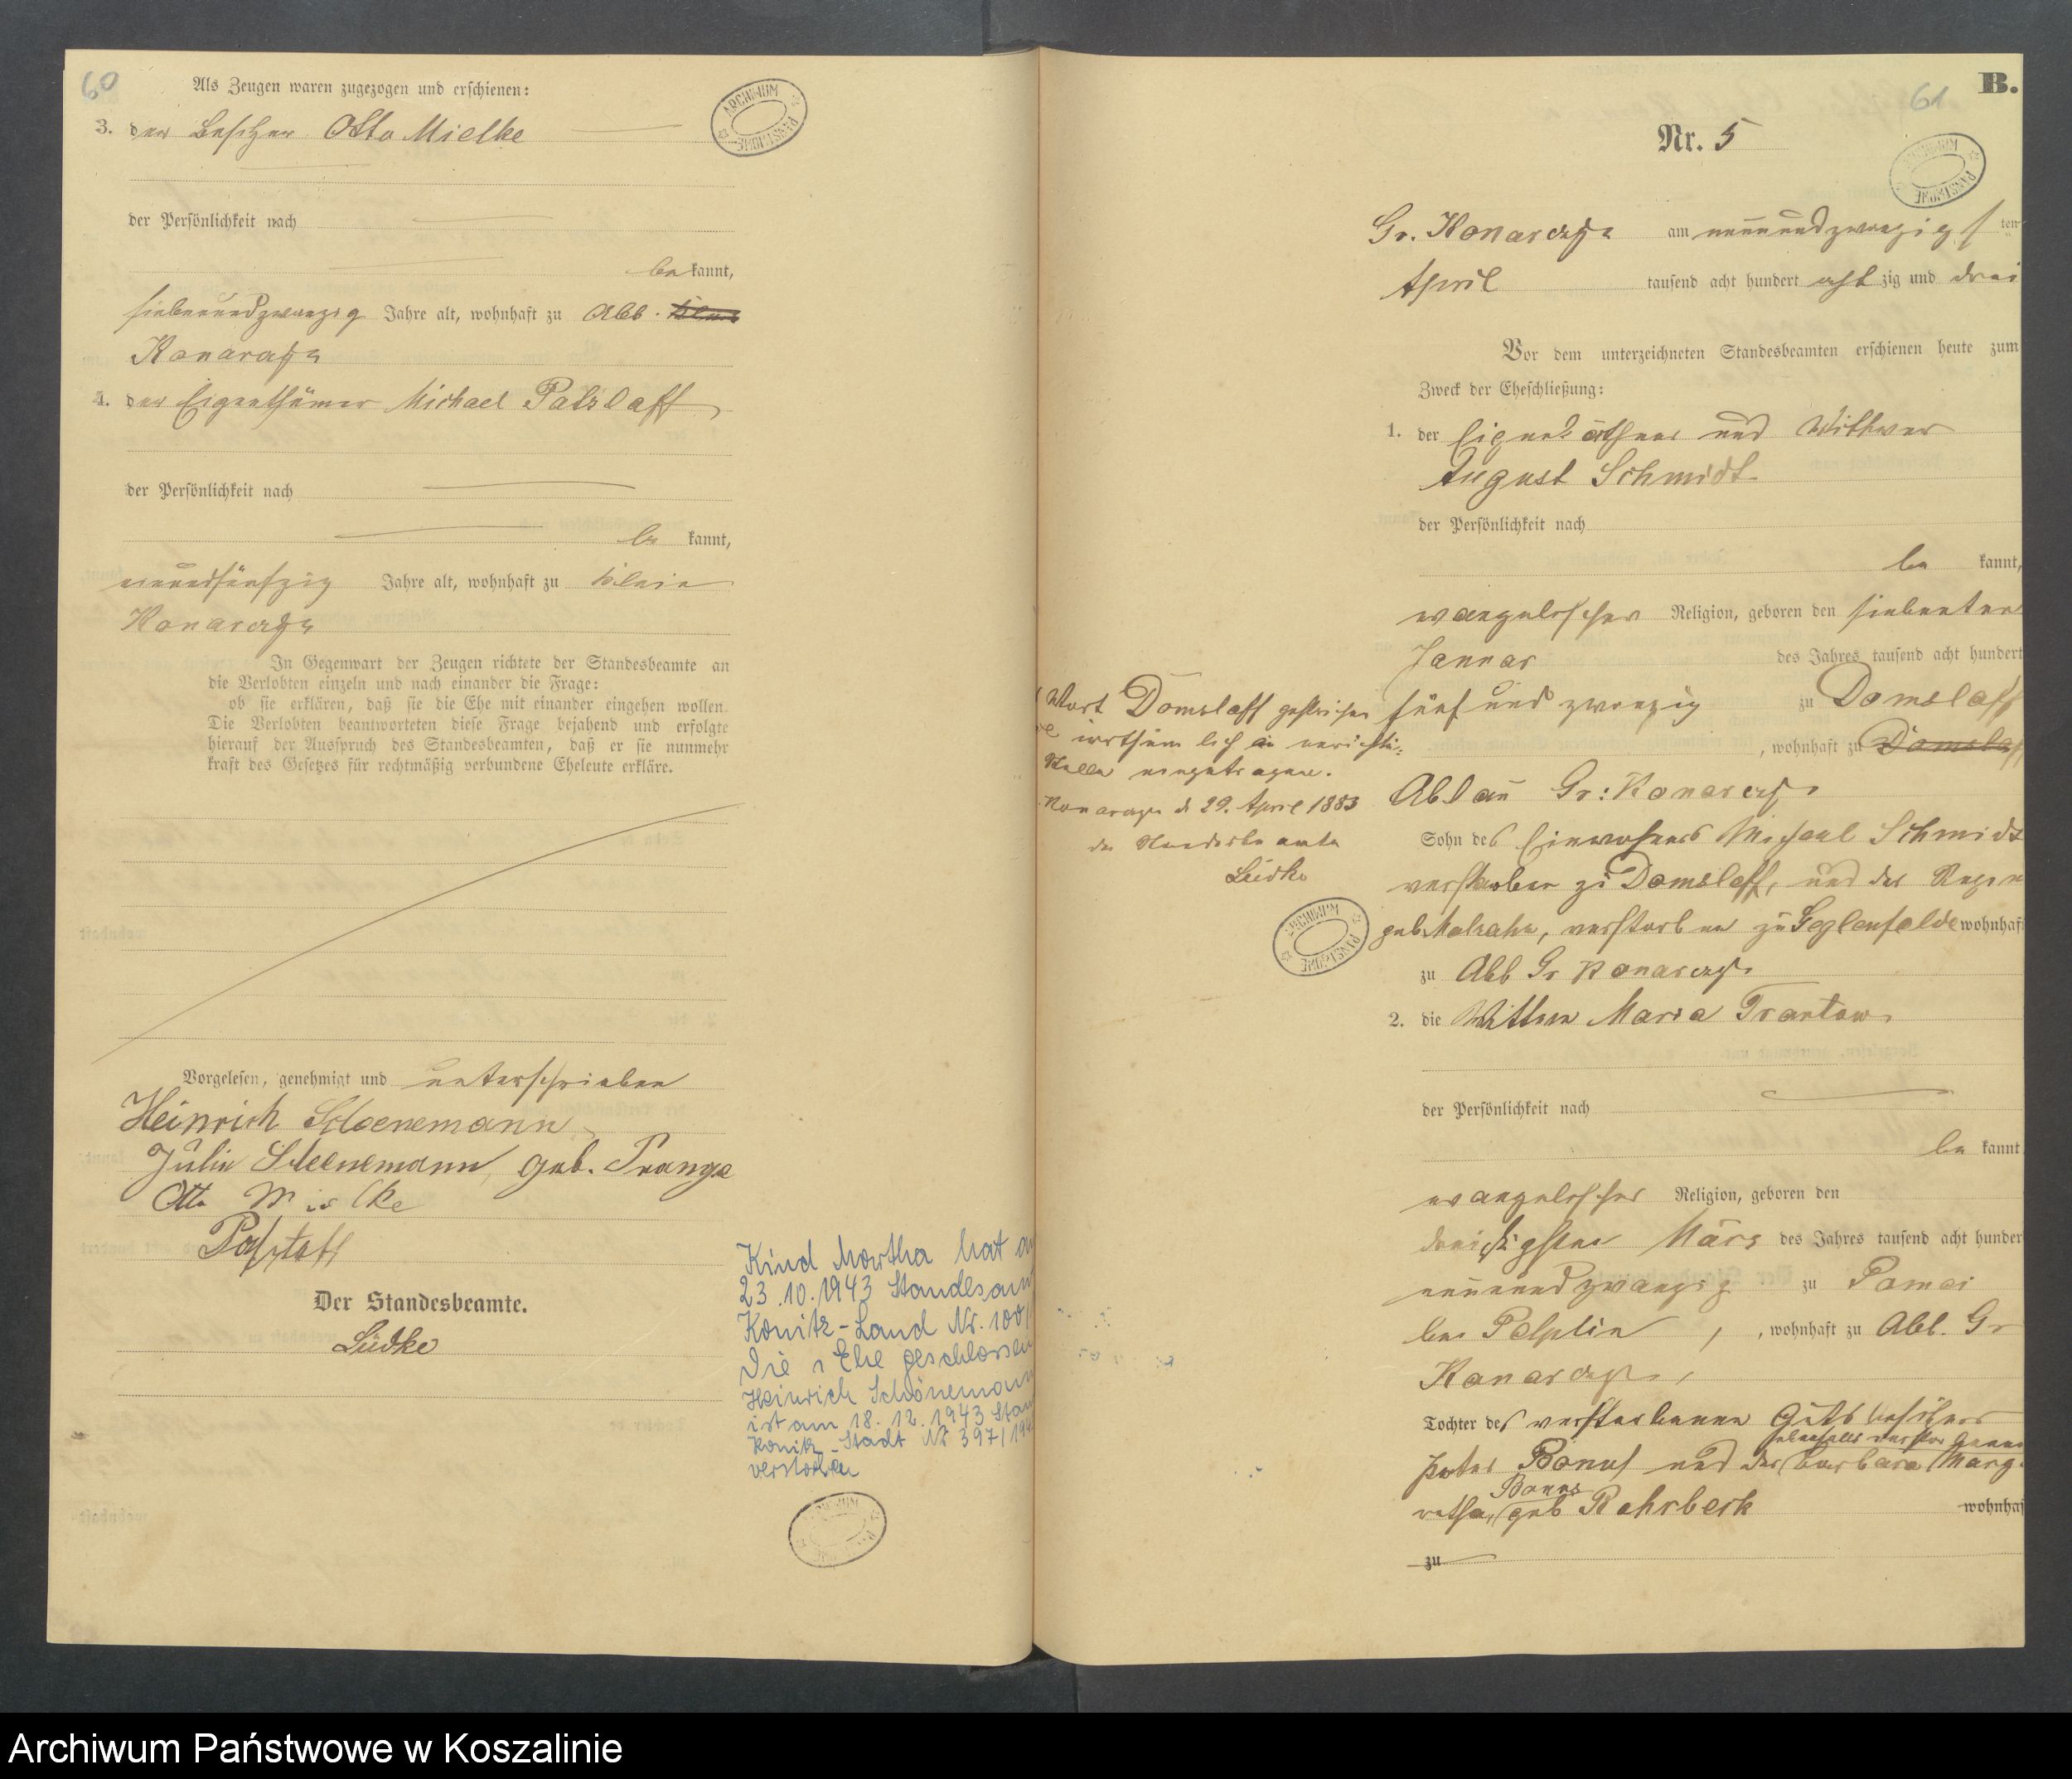 60
Als Zeugen waren zugezogen und erschienen:
3. der Besitzer Otto Mielke
der Persönlichkeit nach
be kannt,
siebenundzwanzig Jahre alt, wohnhaft zu Abb.
Konarczyn
4. der Eigenthümer Michael Patzlaff
der Persönlichkeit nach
be kannt,
Jahre alt, wohnhaft zu Klein
Konarczyn
In Gegenwart der Zeugen richtete der Standesbeamte an
die Verlobten einzeln und nach einander die Frage:
ob sie erklären, daß sie die Ehe mit einander eingehen wollen.
Die Verlobten beantworteten diese Frage bejahend und erfolgte
hierauf der Ausspruch des Standesbeamten, daß er sie nunmehr
kraft des Gesetzes für rechtmäßig verbundene Eheleute erkläre.
Vorgelesen, genehmigt und unterschrieben
Heinrich Schoenemann
Julie Schoenemann, geb. Prange
Otto Mielke
Patzlaff
Der Standesbeamte.
Lüdke
Kind Martha hat a
23.10.1943 Standesam
Konitz-Land Nr. 100/
Die 1 Ehe geschlossen
Heinrich Schönemann
ist am 18.12.1943 Sta
Konitz-Stadt Nr 397/19
verstorben
ARCHIWUM PAŃSTWOWE
61
B.
Nr. 5
Gr. Konarczyn am neunundzwanzigs ten
April tausend acht hundert acht zig und drei
Vor dem unterzeichneten Standesbeamten erschienen heute zum
Zweck der Eheschließung:
1. der Eigenthümer und Wittwer
August Schmidt
der Persönlichkeit nach
be kannt,
evangelischer Religion, geboren den siebenten
Januar des Jahres tausend acht hundert
fünf und zwanzig zu Domslaff
, wohnhaft zu Domslaff
Abbau Gr: Konarczyn
Sohn des Einwohners Michael Schmidt
verstorben zu Domslaff, und der
geb. verstorben zu Seglenfelde wohnhaft
zu Abb Gr Konarczyn
2. die Wittwe Maria Trantow
der Persönlichkeit nach
be kannt
evangelischer Religion, geboren den
dreißigsten März des Jahres tausend acht hunder
neunundzwanzig zu Pomei
bei Pelplin , , wohnhaft zu Abb. Gr
Konarczyn,
Tochter des verstorbenen Gutsbesitzers
ebenfalls verstorbenen
Peter Bonus und der Barbara Marga
Bonus
retha, geb Rohrbeck wohnhaf
zu
Wort Domslaff gestrichen
irrthümlich an unrichti=
Stelle eingetragen.
Konarczyn d 29. April 1883
der Standesbeamte
Lüdke
ARCHIWUM PAŃSTWOWE
Archiwum Państwowe w Koszalinie